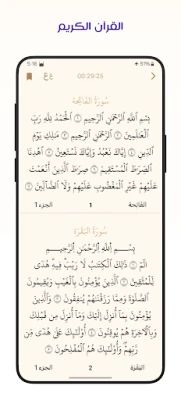 القرآن الكريم
5:16
57%
00:29:25
سُورَةُ الفَاتِحَة
بِسْمِ اللَّهِ الرَّحْمَٰنِ الرَّحِيمِ ۝١ الْحَمْدُ لِلَّهِ رَبِّ
الْعَالَمِينَ ۝٢ الرَّحْمَٰنِ الرَّحِيمِ ۝٣ مَالِكِ يَوْمِ
الدِّينِ ۝٤ إِيَّاكَ نَعْبُدُ وَإِيَّاكَ نَسْتَعِينُ ۝٥ اهْدِنَا
الصِّرَاطَ الْمُسْتَقِيمَ ۝٦ صِرَاطَ الَّذِينَ أَنْعَمْتَ
عَلَيْهِمْ غَيْرِ الْمَغْضُوبِ عَلَيْهِمْ وَلَا الضَّالِّينَ ۝٧
الفاتحة 1 الجزء 1
سُورَةُ البَقَرَة
بِسْمِ اللَّهِ الرَّحْمَٰنِ الرَّحِيمِ
الم ۝١ ذَٰلِكَ الْكِتَابُ لَا رَيْبَ فِيهِ هُدًى
لِلْمُتَّقِينَ ۝٢ الَّذِينَ يُؤْمِنُونَ بِالْغَيْبِ وَيُقِيمُونَ
الصَّلَاةَ وَمِمَّا رَزَقْنَاهُمْ يُنْفِقُونَ ۝٣ وَالَّذِينَ
يُؤْمِنُونَ بِمَا أُنْزِلَ إِلَيْكَ وَمَا أُنْزِلَ مِنْ قَبْلِكَ
وَبِالْآخِرَةِ هُمْ يُوقِنُونَ ۝٤ أُولَٰئِكَ عَلَىٰ هُدًى مِنْ
رَبِّهِمْ وَأُولَٰئِكَ هُمُ الْمُفْلِحُونَ ۝٥
البقرة 2 الجزء 1